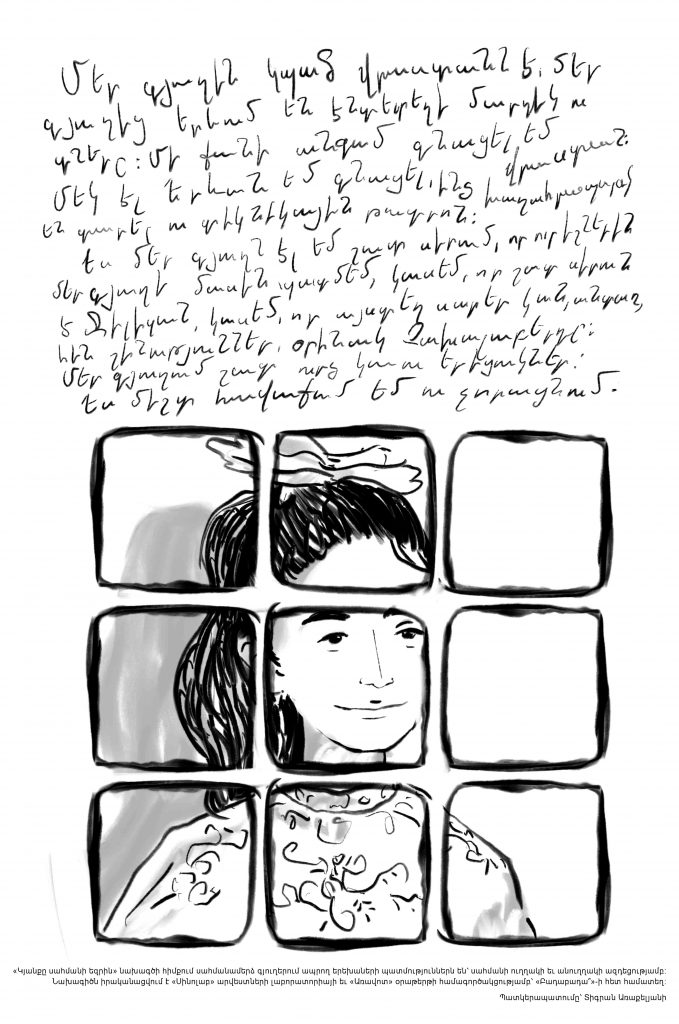 Մեր գյուղին կպած Վրաստանն է, մեր
գյուղից երևում են էնտեղի մարդիկ ու
տները: Մի քանի անգամ գնացել եմ
Մեկ էլ Երևան եմ գնացել, ինձ
են տարել ու տիկնիկային թատրոն:
Ես մեր գյուղն էլ եմ շատ սիրում, որ ուրիշներին
մեր գյուղի մասին պատմեմ, կասեմ, որ շատ սիրուն
է Ջիլիզան, կասեմ, որ այստեղ սարեր կան, անտառ,
հին շինություններ, օրինակ
Մեր գյուղում շատ ոչխար կա ու երեխաներ:
Ես միշտ հավաքում եմ ու չորացնում.
«Կյանքը սահմանի եզրին» նախագծի հիմքում սահմանամերձ գյուղերում ապրող երեխաների պատմություններն են՝ սահմանի ուղղակի եւ անուղղակի ազդեցությամբ:
Նախագիծն իրականացվում է «Սինոլաբ» արվեստների լաբորատորիայի եւ «Առավոտ» օրաթերթի համագործակցությամբ՝ «Բադաբադա՞»-ի հետ համատեղ:
Պատկերապատումը՝ Տիգրան Առաքելյանի